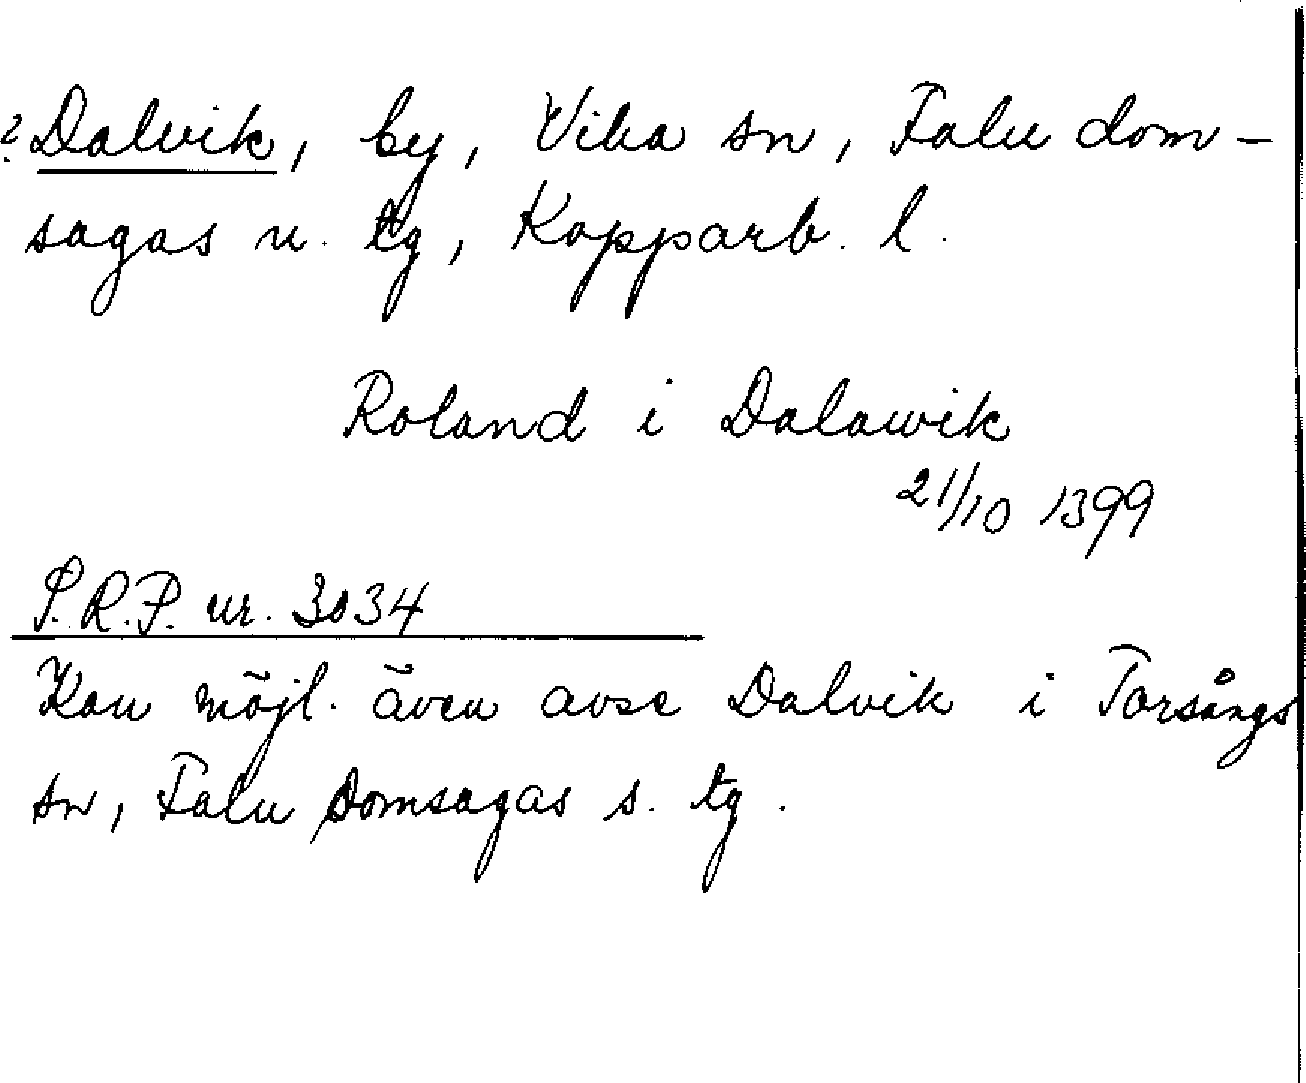 ? Dalvik, by, Vika sn, Falu dom-
sagas n. tg, Kopparb. l.
Roland i Dalawik
21/10 1399
S.R.P. nr. 3034
Kan möjl. även avse Dalvik i Torsångs
sn, Falu Domsagas s. tg.